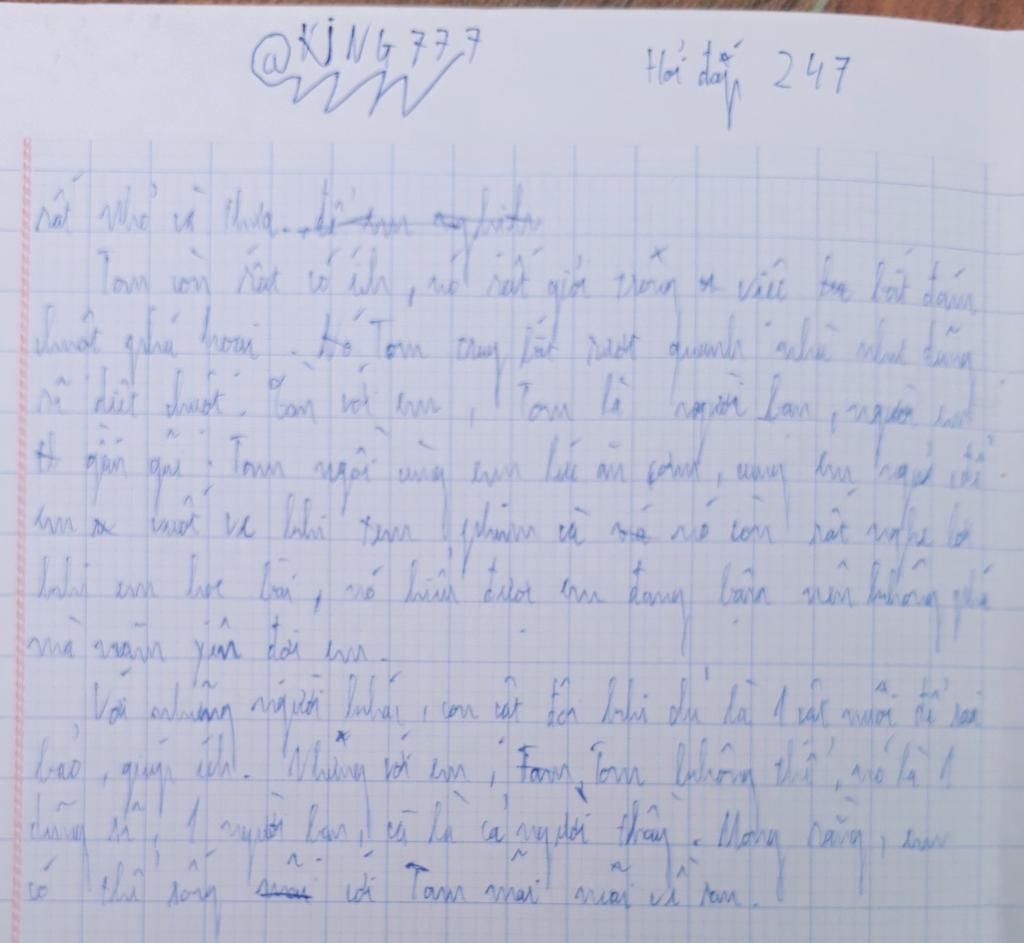 @KING777 Hỏi đáp 247
rất nhỏ và thưa.
Tom còn rất có ích, nó rất giỏi trong việc bắt đám
chuột phá hoại. Có Tom truy bắt suốt quanh nhà như dũng
sĩ diệt chuột. Còn với em, Tom là người bạn, người em
gần gũi. Tom ngồi cùng em lúc ăn cơm, cùng em ngủ, để
em vuốt ve khi xem phim và nó còn rất nghe lời
khi em học bài, nó hiểu được em đang bận nên không phá
mà nằm yên đợi em.
Với những người khác, con vật đôi khi chỉ là 1 vật nuôi để sai
bảo, giúp ích. Nhưng với em, Tom không thế, nó là 1
dũng sĩ, 1 người bạn, và là cả người thầy. Mong rằng, em
có thể sống với Tom mãi mãi về sau.